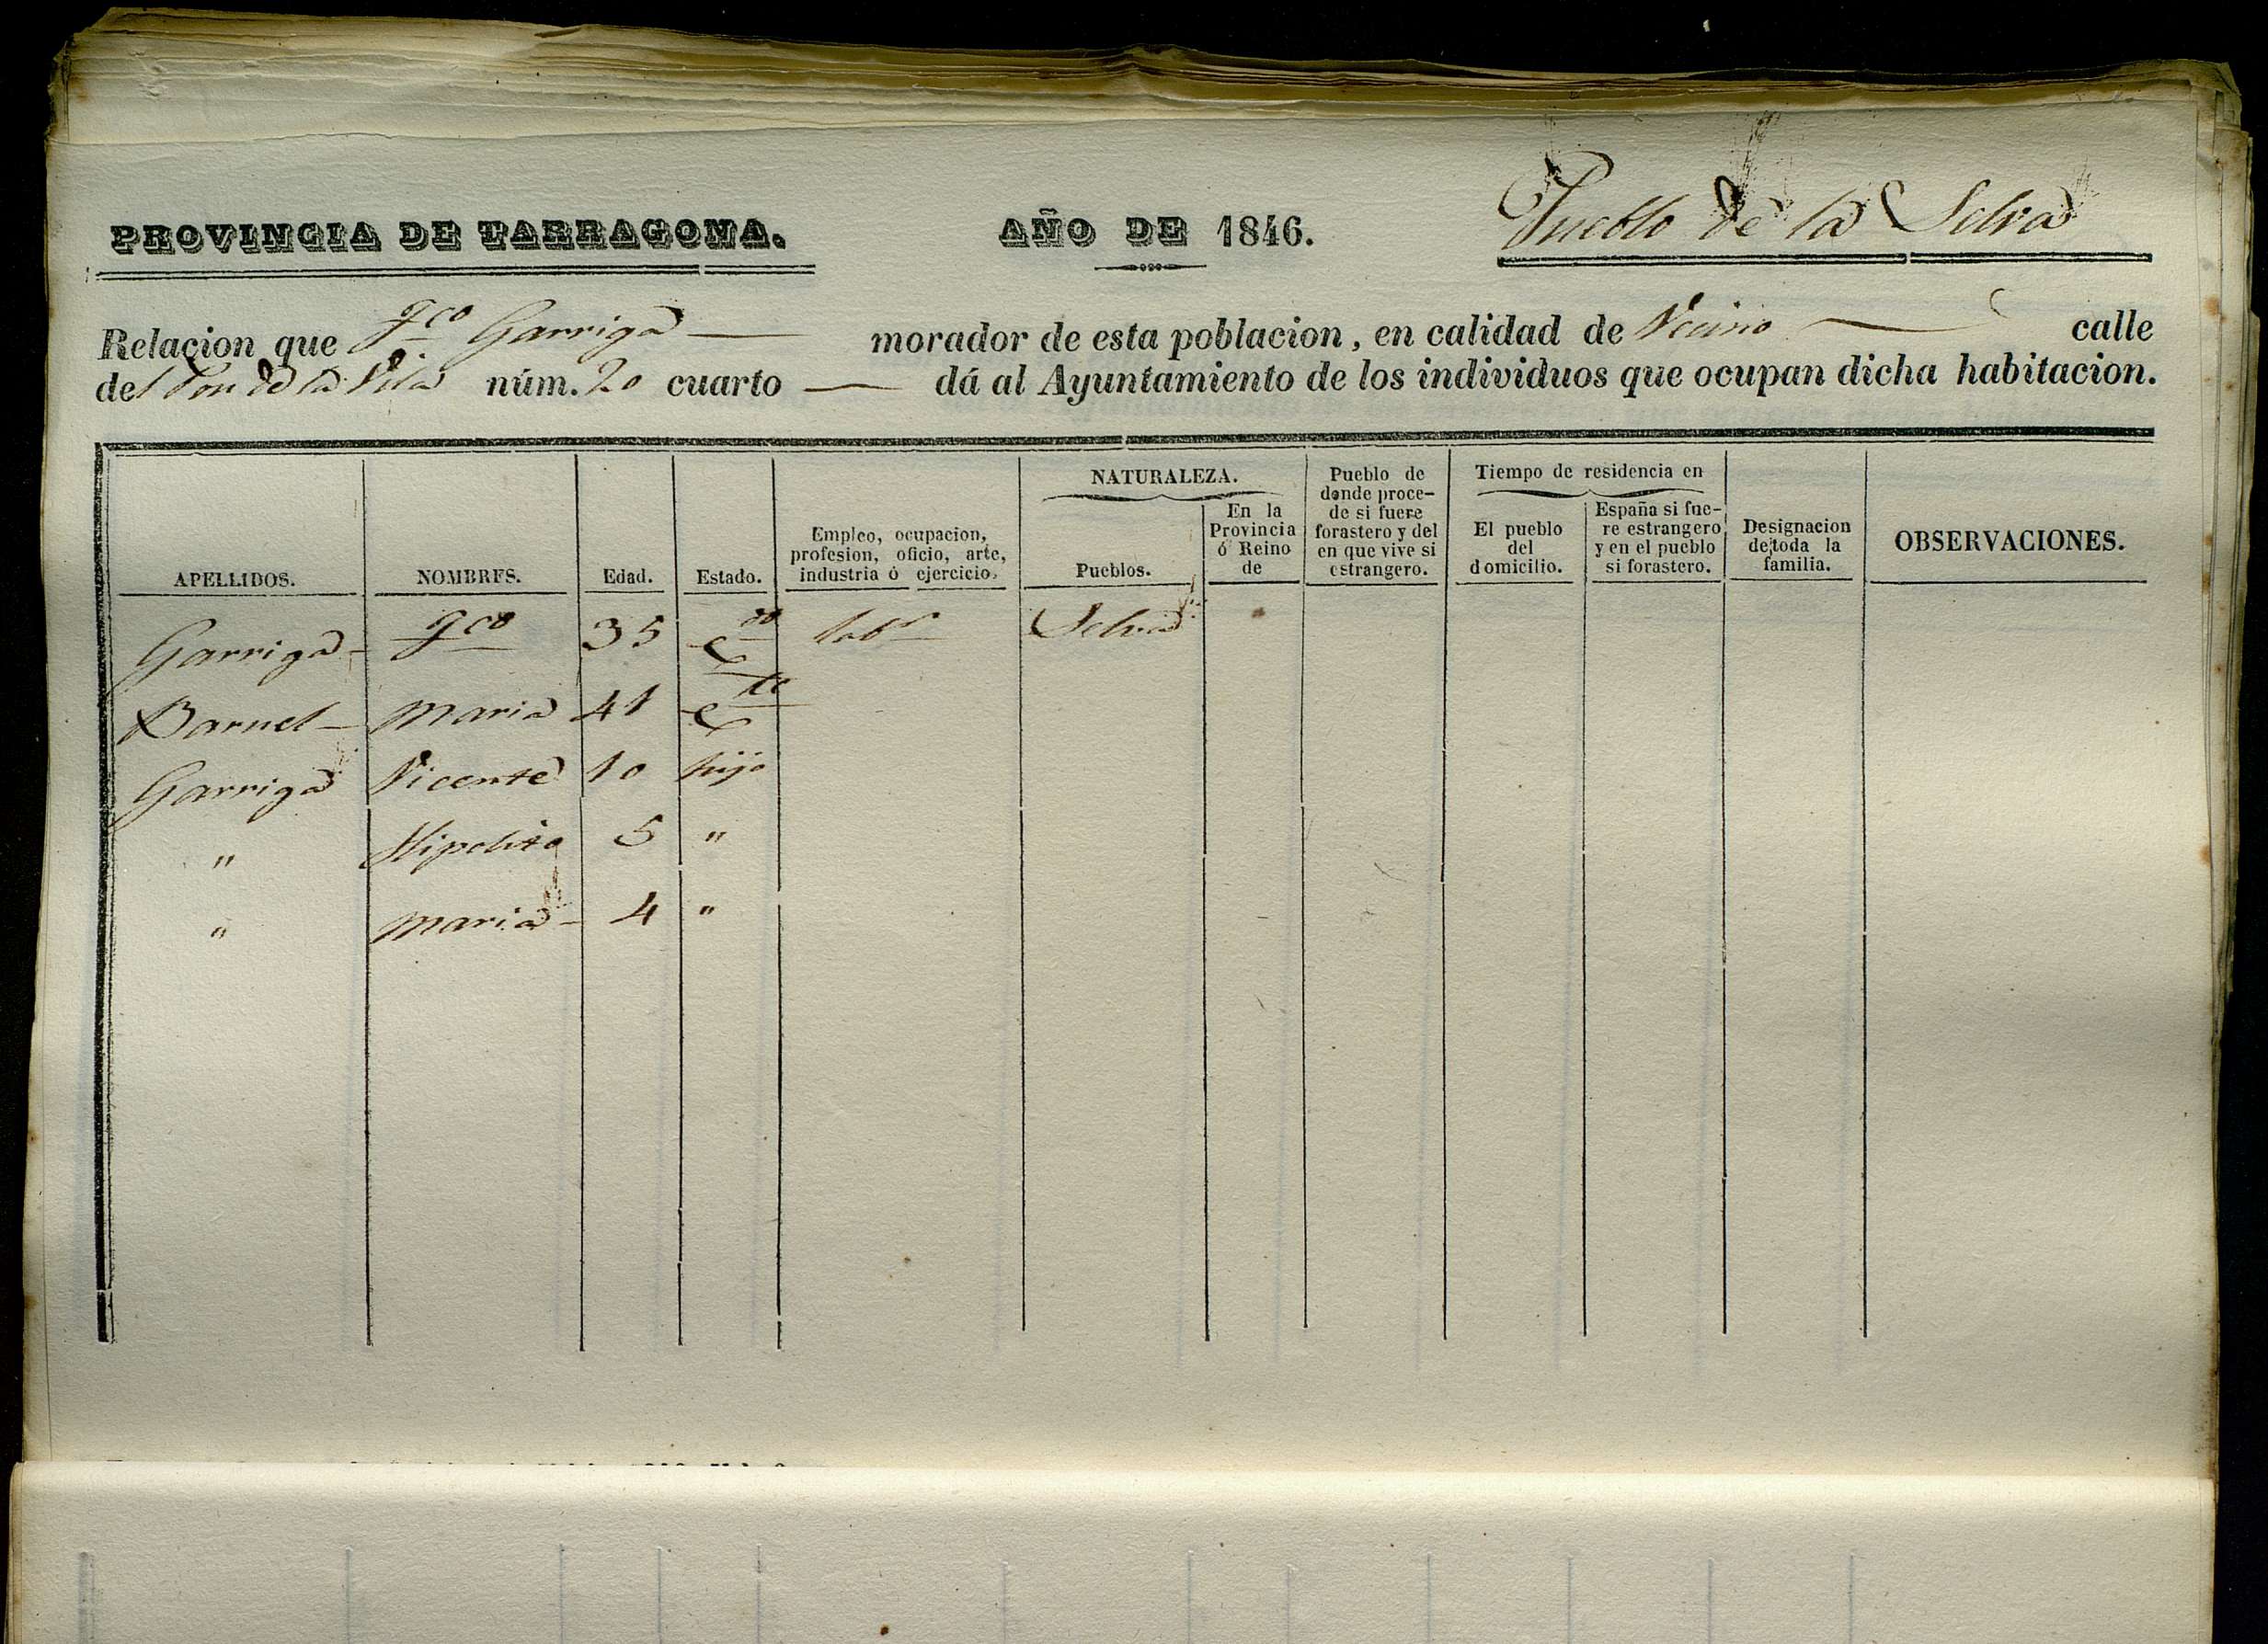 PROVINCIA DE TARRAGONA.
AÑO DE 1846.
Pueblo de la Selva
Relacion que Fco Garriga morador de esta poblacion, en calidad de Vecino calle
del Pou de la Vila núm. 20 cuarto — dá al Ayuntamiento de los individuos que ocupan dicha habitacion.
APELLIDOS.
NOMBRES.
Edad.
Estado.
Empleo, ocupacion,
profesion, oficio, arte,
industria ó ejercicio.
NATURALEZA.
Pueblos.
En la
Provincia
ó Reino
de
Pueblo de
donde proce-
de si fuere
forastero y del
en que vive si
estrangero.
Tiempo de residencia en
El pueblo
del
domicilio.
España si fue-
re estrangero
y en el pueblo
si forastero.
Designacion
de toda la
familia.
OBSERVACIONES.
Garriga - Fco 35 Cdo labr Selva
Barnet - Maria 41 Cda
Garriga Vicente 10 hijo
" Hipolito 5 "
" Maria - 4 "